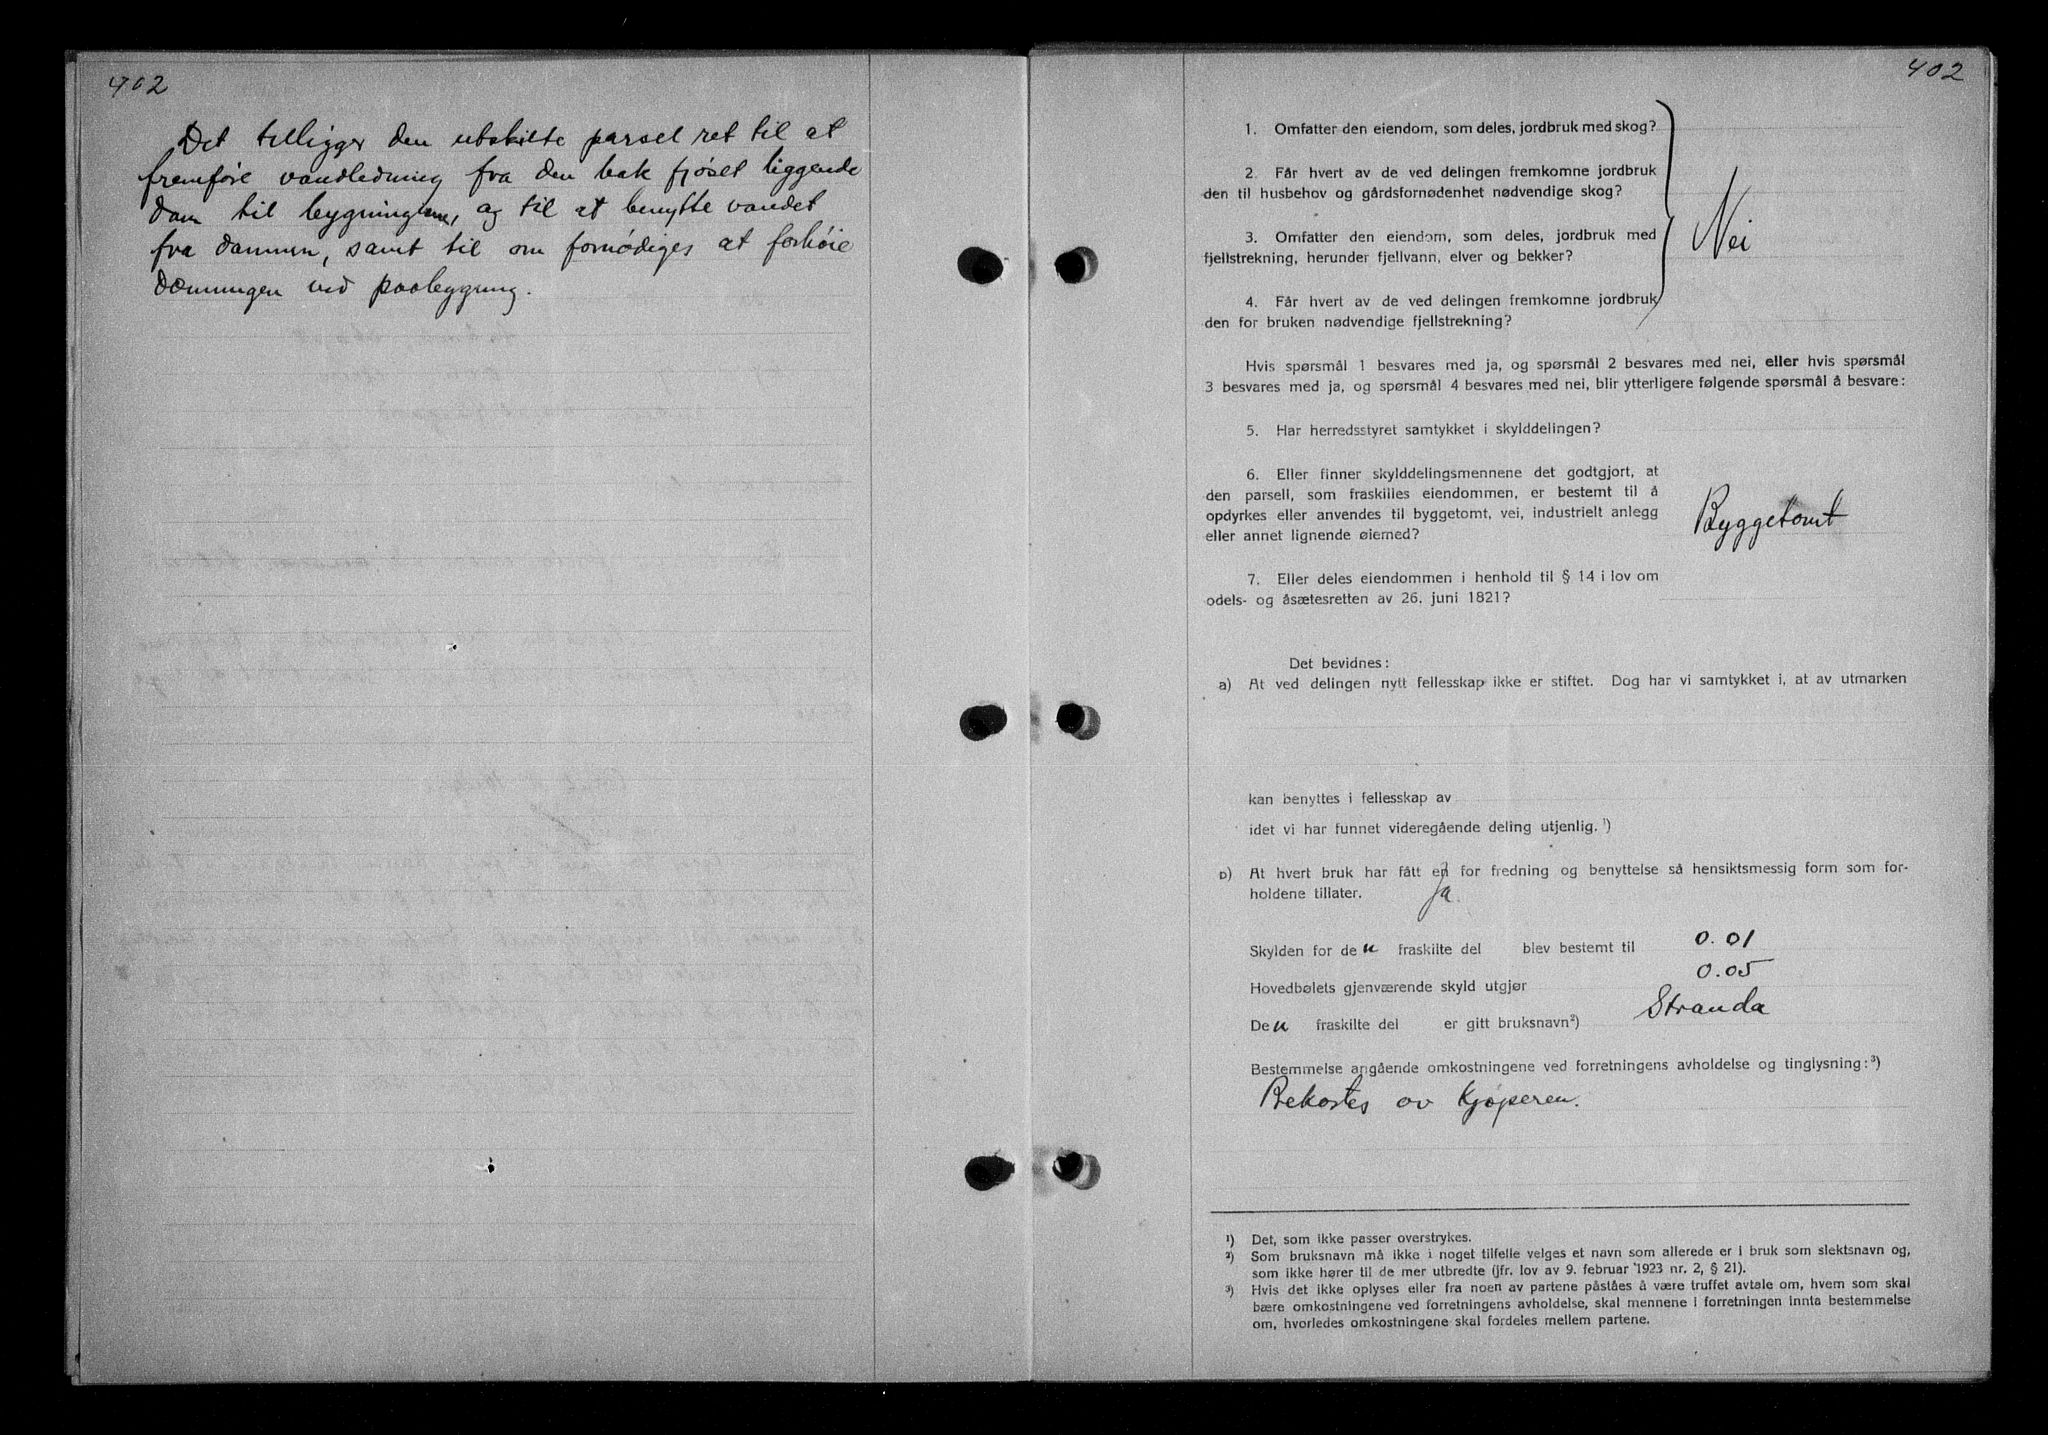 402
Det tilligger den utskilte parsel ret til at
fremføre vandledning fra den bak fjøset liggende
dam til bygningene, og til at benytte vandet
fra dammen, samt til om fornødiges at forhøie
dæmningen ved paabygging.
402
1. Omfatter den eiendom, som deles, jordbruk med skog?
2. Får hvert av de ved delingen fremkomne jordbruk
den til husbehov og gårdsfornødenhet nødvendige skog?
3. Omfatter den eiendom, som deles, jordbruk med
fjellstrekning, herunder fjellvann, elver og bekker?
Nei
4. Får hvert av de ved delingen fremkomne jordbruk
den for bruken nødvendige fjellstrekning?
Hvis spørsmål 1 besvares med ja, og spørsmål 2 besvares med nei, eller hvis spørsmål
3 besvares med ja, og spørsmål 4 besvares med nei, blir ytterligere følgende spørsmål å besvare:
5. Har herredsstyret samtykket i skylddelingen?
6. Eller finner skylddelingsmennene det godtgjort, at
den parsell, som fraskilles eiendommen, er bestemt til å
opdyrkes eller anvendes til byggetomt, vei, industrielt anlegg
eller annet lignende øiemed?
Byggetomt
7. Eller deles eiendommen i henhold til § 14 i lov om
odels- og åsætesretten av 26. juni 1821?
Det bevidnes:
a) At ved delingen nytt fellesskap ikke er stiftet. Dog har vi samtykket i, at av utmarken
kan benyttes i fellesskap av
idet vi har funnet videregående deling utjenlig.¹)
b) At hvert bruk har fått en for fredning og benyttelse så hensiktsmessig form som for-
holdene tillater. Ja.
Skylden for den fraskilte del blev bestemt til 0.01
Hovedbølets gjenværende skyld utgjør 0.05
Den fraskilte del er gitt bruksnavn²) Stranda
Bestemmelse angående omkostningene ved forretningens avholdelse og tinglysning:³)
Bekostes av kjøperen.
¹) Det, som ikke passer overstrykes.
²) Som bruksnavn må ikke i noget tilfelle velges et navn som allerede er i bruk som slektsnavn og,
som ikke hører til de mer utbredte (jfr. lov av 9. februar 1923 nr. 2, § 21).
³) Hvis det ikke oplyses eller fra noen av partene påståes å være truffet avtale om, hvem som skal
bære omkostningene ved forretningens avholdelse, skal mennene i forretningen innta bestemmelse
om, hvorledes omkostningene skal fordeles mellem partene.